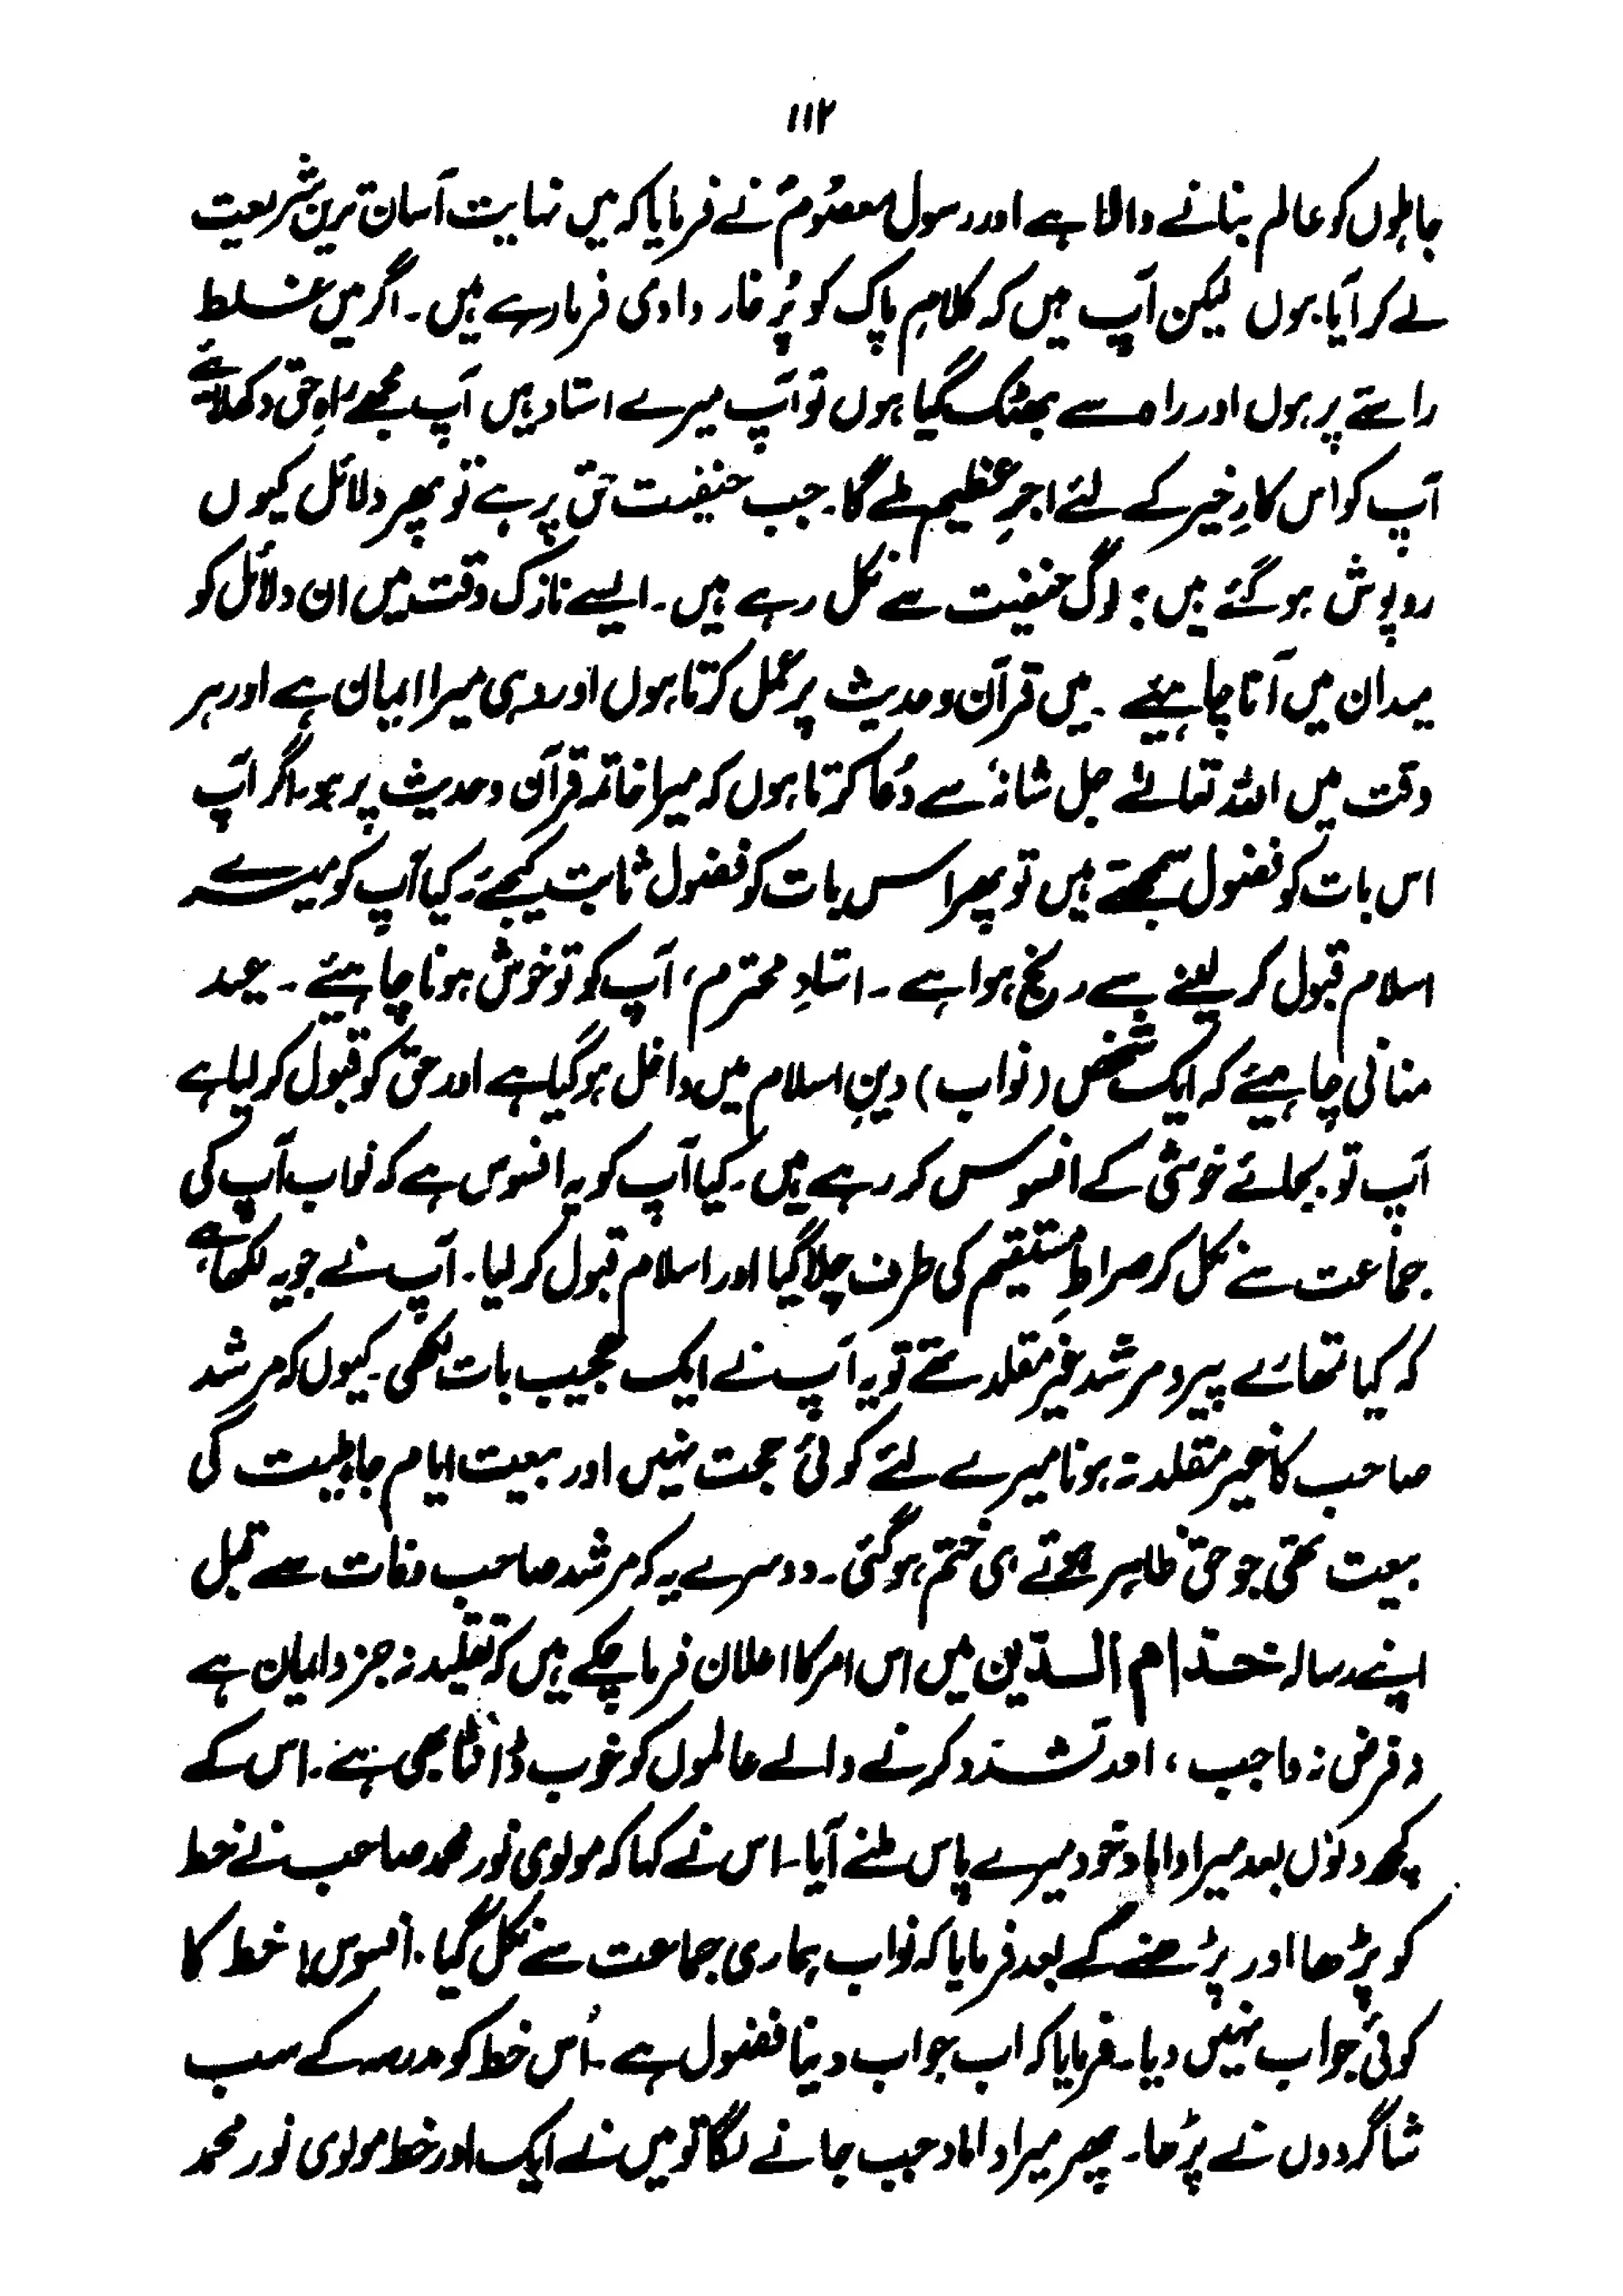 ۱۱۲
جاہلوں کو عالم بنانے والا ہے اور رسول معصومؐ نے فرمایا کہ میں نہایت آسان ترین شریعت
لے کر آیا ہوں لیکن آپ ہیں کہ کلامِ پاک کو پُر خار وادی فرما رہے ہیں۔ اگر میں غلط
راستے پر ہوں اور راہ سے بھٹک گیا ہوں تو آپ میرے استاد ہیں آپ مجھے راہِ حق دکھلائیے
آپ کو اس کارِ خیر کے لئے اجرِ عظیم ملے گا۔ جب حنفیت حق پر ہے تو پھر دلائل کیوں
روپوش ہو گئے ہیں؟ لوگ حنفیت سے نکل رہے ہیں۔ ایسے نازک وقت میں ان دلائل کو
میدان میں آنا چاہیئے۔ میں قرآن و حدیث پر عمل کرتا ہوں اور وہی میرا ایمان ہے اور ہر
وقت میں اللہ تعالےٰ جل شانہٗ سے دُعا کرتا ہوں کہ میرا خاتمہ قرآن و حدیث پر ہو۔ اگر آپ
اس بات کو فضول سمجھتے ہیں تو پھر اس بات کو فضول ثابت کیجئے۔ کیا آپ کو میرے
اسلام قبول کر لینے سے رنج ہوا ہے۔ استادِ محترم، آپ کو تو خوش ہونا چاہیئے۔ عید
منانی چاہیئے کہ ایک شخص (نواب) دینِ اسلام میں داخل ہو گیا ہے اور حق کو قبول کر لیا ہے
آپ تو بجائے خوشی کے افسوس کر رہے ہیں۔ کیا آپ کو یہ افسوس ہے کہ نواب آپ کی
جماعت سے نکل کر صراطِ مستقیم کی طرف چلا گیا اور اسلام قبول کر لیا۔ آپ نے جو یہ لکھا ہے
کہ کیا تمھارے پیر و مرشد غیر مقلد تھے تو یہ آپ نے ایک عجیب بات لکھی۔ کیوں کہ مرشد
صاحب کا غیر مقلد نہ ہونا میرے لئے کوئی حجت نہیں اور بیعت ایام جاہلیت کی
بیعت تھی جو حق ظاہر ہوتے ہی ختم ہو گئی۔ دوسرے یہ کہ مرشد صاحب وفات سے قبل
اپنے رسالہ خدام الدین میں اس امر کا اعلان فرما چکے ہیں کہ تقلید نہ جزو ایمان ہے
و فرض نہ واجب، اور تشدد کرنے والے عالموں کو خوب ڈانٹا بھی ہے۔ اس کے
کچھ دنوں بعد میرا داماد خود میرے پاس ملنے آیا۔ اس نے کہا کہ مولوی نور محمد صاحب نے خط
کو پڑھا اور پڑھنے کے بعد فرمایا کہ نواب ہماری جماعت سے نکل گیا۔ افسوس! خط کا
کوئی جواب نہیں دیا۔ فرمایا کہ اب جواب دینا فضول ہے۔ اُس خط کو مدرسہ کے سب
شاگردوں نے پڑھا۔ پھر میرا داماد جب جانے لگا تو میں نے ایک اور خط مولوی نور محمد